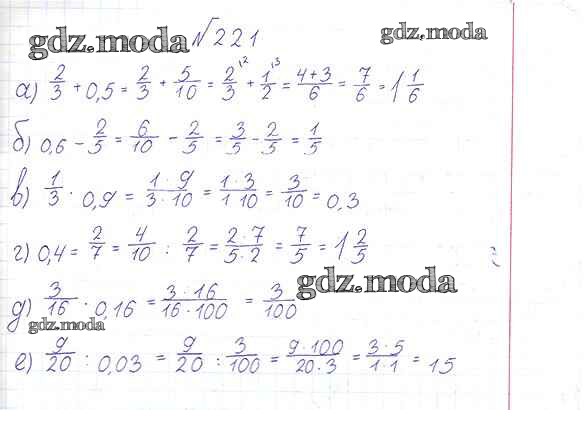 gdz.moda №221 gdz.moda
а) 2/3 + 0,5 = 2/3 + 5/10 = 2/3 ^(12) + 1/2 ^(13) = (4+3)/6 = 7/6 = 1 1/6
б) 0,6 - 2/5 = 6/10 - 2/5 = 3/5 - 2/5 = 1/5
в) 1/3 · 0,9 = (1·9)/(3·10) = (1·3)/(1·10) = 3/10 = 0,3
г) 0,4 = 2/7 = 4/10 : 2/7 = (2·7)/(5·2) = 7/5 = 1 2/5
gdz.moda
д) 3/16 · 0,16 = (3·16)/(16·100) = 3/100
gdz.moda
е) 9/20 : 0,03 = 9/20 : 3/100 = (9·100)/(20·3) = (3·5)/(1·1) = 15